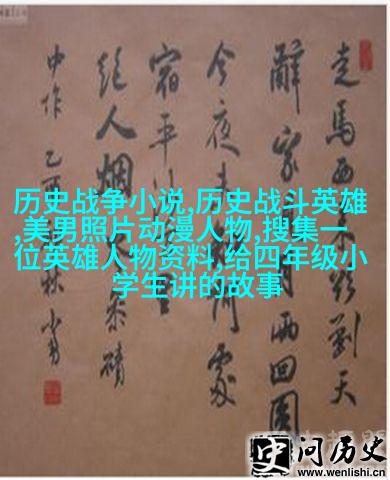 走馬西来欲到天
辭家月兩回圓
今夜未處
宿平
絕人烟岑參磧
中作 乙酉秋
历史战争小说,历史战斗英雄
,美男照片动漫人物,搜集一
位英雄人物资料,给四年级小
学生讲的故事
史 问历史
www.wenlishi.cn